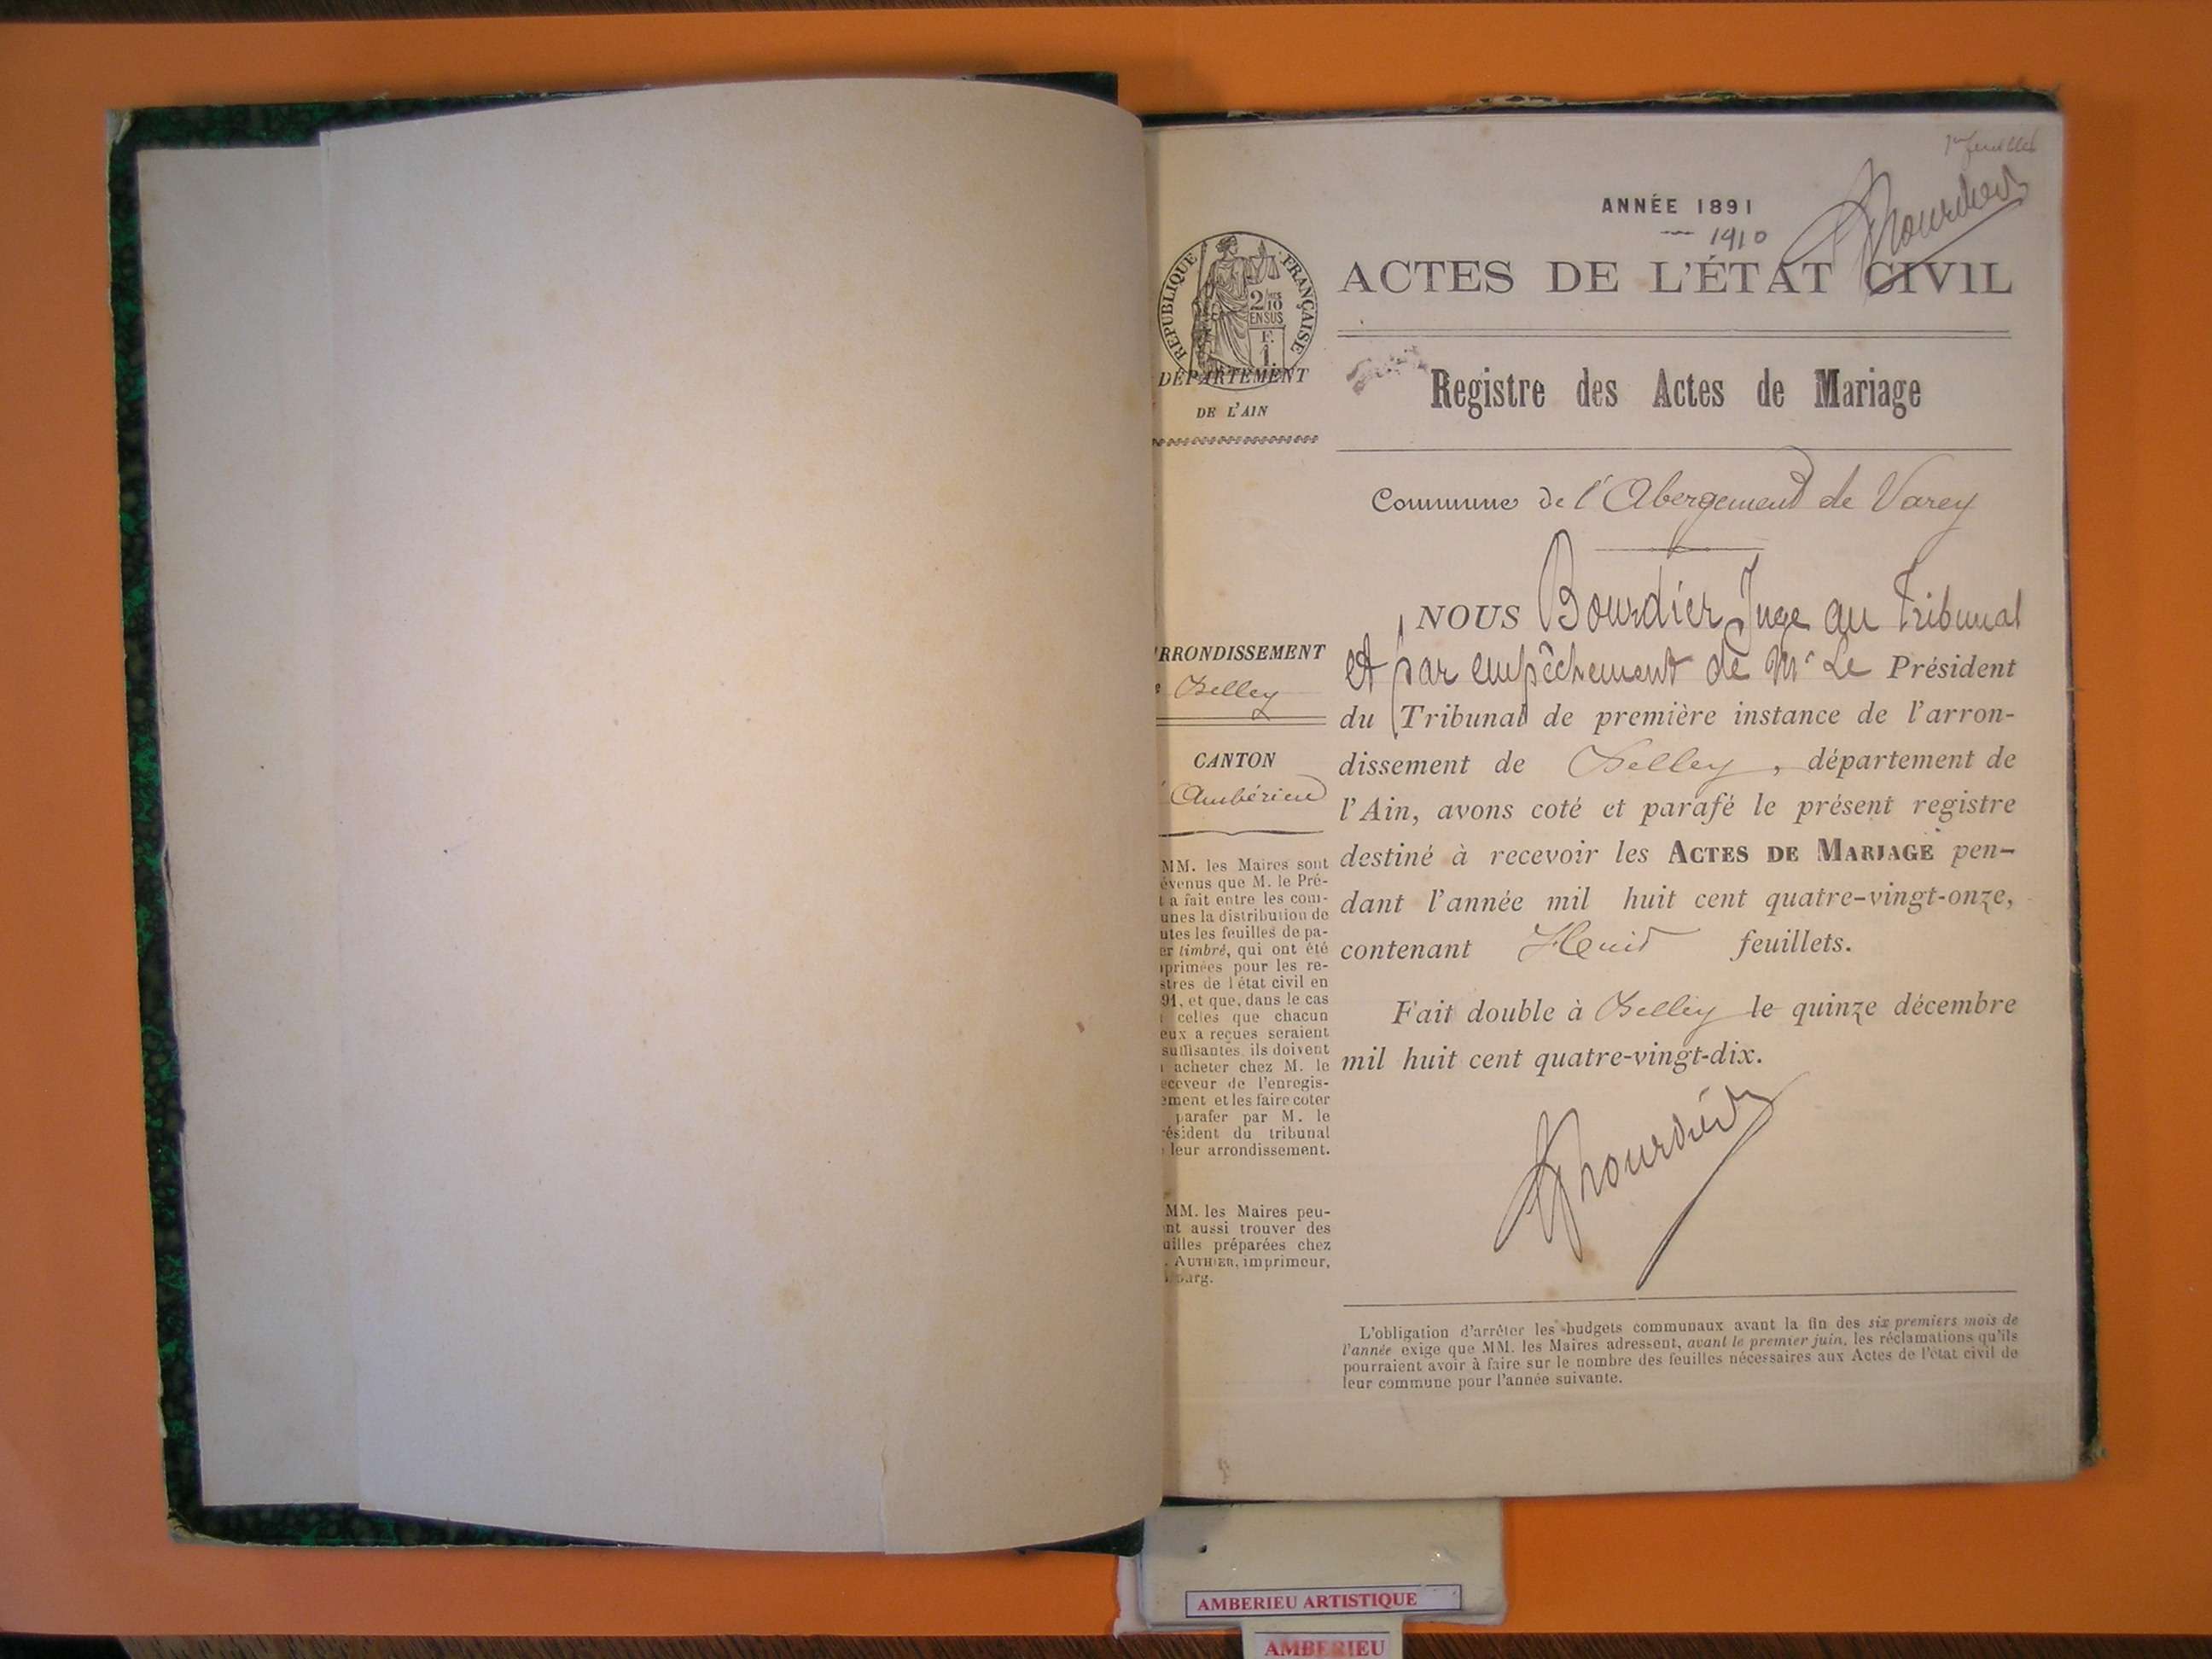 1er feuillet
ANNÉE 1891
— 1910
ACTES DE L'ÉTAT CIVIL
RÉPUBLIQUE FRANÇAISE
2/10
EN SUS
F.
1.
DÉPARTEMENT
DE L'AIN
Registre des Actes de Mariage
Commune de l'Abergement de Varey
NOUS Bourdier Juge au Tribunal
et par empêchement de Mr Le Président
du Tribunal de première instance de l'arron-
dissement de Belley, département de
l'Ain, avons coté et parafé le présent registre
destiné à recevoir les ACTES DE MARIAGE pen-
dant l'année mil huit cent quatre-vingt-onze,
contenant Huit feuillets.
Fait double à Belley le quinze décembre
mil huit cent quatre-vingt-dix.
RRONDISSEMENT
Belley
CANTON
Ambérieu
MM. les Maires sont
évenus que M. le Pré-
t a fait entre les com-
unes la distribution de
utes les feuilles de pa-
er timbré, qui ont été
primées pour les re-
stres de l'état civil en
91, et que, dans le cas
celles que chacun
eux a reçues seraient
suffisantes, ils doivent
acheter chez M. le
eceveur de l'enregis-
ement et les faire coter
parafer par M. le
résident du tribunal
leur arrondissement.
MM. les Maires peu-
nt aussi trouver des
uilles préparées chez
. AUTHIER, imprimeur,
ourg.
L'obligation d'arrêter les budgets communaux avant la fin des six premiers mois de
l'année exige que MM. les Maires adressent, avant le premier juin, les réclamations qu'ils
pourraient avoir à faire sur le nombre des feuilles nécessaires aux Actes de l'état civil de
leur commune pour l'année suivante.
AMBERIEU ARTISTIQUE
AMBERIEU